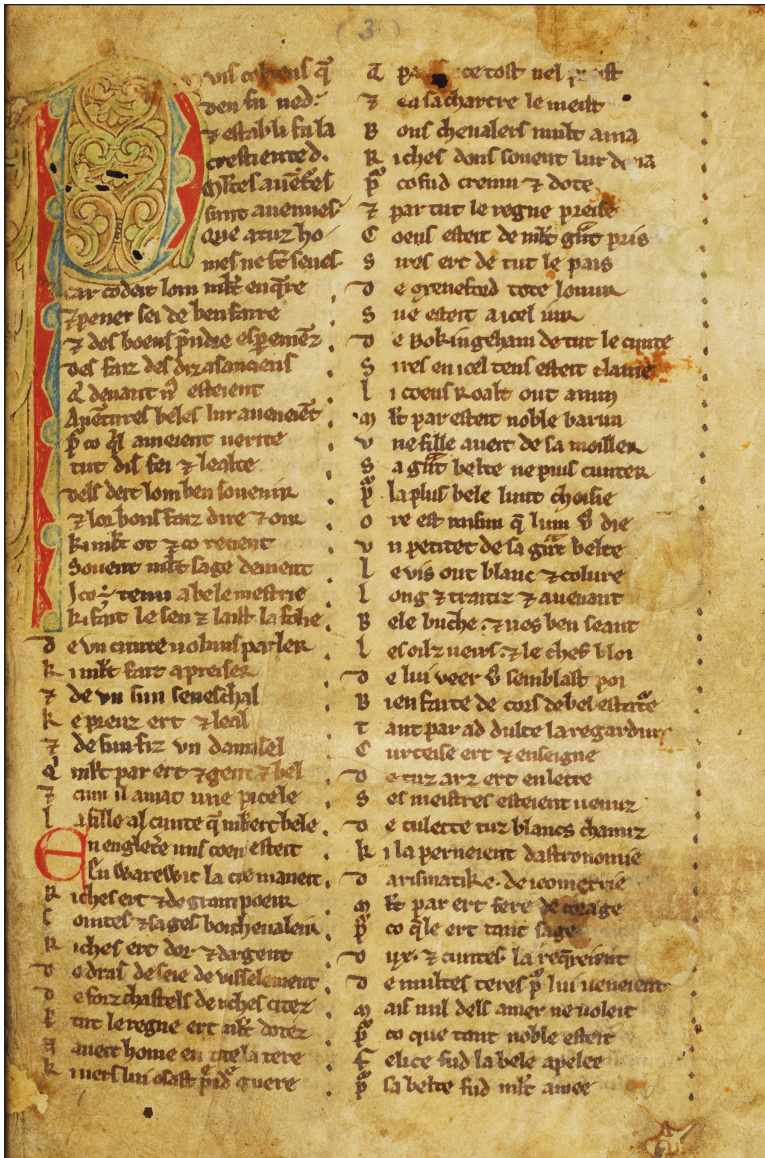 (3)
Puis cel tens q̄
deu fu ned.
⁊ establi fu la
crestiente d.
Mltes auētes
sunt auenues
Que a tuz ho
mes ne sūt seues
Car co deit lom mlt enq̄re
⁊ pener sei de ben faire
⁊ des boens p̄ndre espermēz
des faiz des anciens
Qͥ deuant nꝰ esteient
Auētures beles lur aueneiēt
P̄ co qͥl ameient uerite
tut dis fei ⁊ lealte
dels deit lom ben souenir
⁊ lor bons faiz dire ⁊ oir
ki mlt ot ⁊ co retient
Souent mlt sage deuient
I co tenu a bele mestrie
ki fait le sen ⁊ laist la folie
de vn cunte uolums parler
ki mlt fait a preiser
⁊ de vn sun seneschal
ke pruz ert ⁊ leal
⁊ de sun fiz vn damisel
Qͥ mlt par ert ⁊ gent ⁊ bel
⁊ cum il amat une pucele
la fille al cunte q̄ mlt ert bele
En engleťe uns coens esteit
En warewic la cite maneit
Riches ert ⁊ de grant poeir
Cointes ⁊ sages bon cheualeir
Riches ert dor ⁊ dargent
de dras de seie de uesselement
de forz chastels de riches citez
P̄ tut le regne ert mlt dotez
naueit home en tote la tere
ki uers lui osast p̄ndꝰ guere
⁊ ce tost nel
⁊ en sa chartre le meist
Bons cheualers mult ama
Riches dons souent lur dona
P̄ co fud cremu ⁊ dote
⁊ par tut le regne preise
Coens esteit de mlt gͣnt pris
Sires ert de tut le pais
de oxeneford tote lonur
Sue esteit a icel iur
de Bokingeham de tut le cunte
Sires en icel tens esteit clame
li coens Roalt out anun
mlt par esteit noble barun
vne fille aueit de sa moiller
Sa gͣnt belte ne puis cunter
P̄ la plus bele lunt choisie
ore est raisun q̄ lum uꝰ die
vn petitet de sa gͣnt belte
le vis out blanc ⁊ colure
long ⁊ traitiz ⁊ auenant
Bele buche ⁊ nes ben seant
les oilz ueirs ⁊ le chef bloi
de lui ueer uꝰ semblast poi
Bien faite de cors de bel estatͣe
tant par ad dulce la regardure
Curteise ert ⁊ enseigne
de tuz arz ert enletre
Ses meistres esteient uenuz
de tulette tuz blancs chanuz
ki la perneient dastronomie
darismatike. de ieometrie
mlt par ert fere de corage
P̄ co qͥle ert tant sage
dux. ⁊ cuntes la req̄reient
de multes teres p̄ lui ueneient
mais nul dels amer ne uoleit
P̄ co que tant noble esteit
Felice fud la bele apelee
P̄ sa belte fud mlt amee